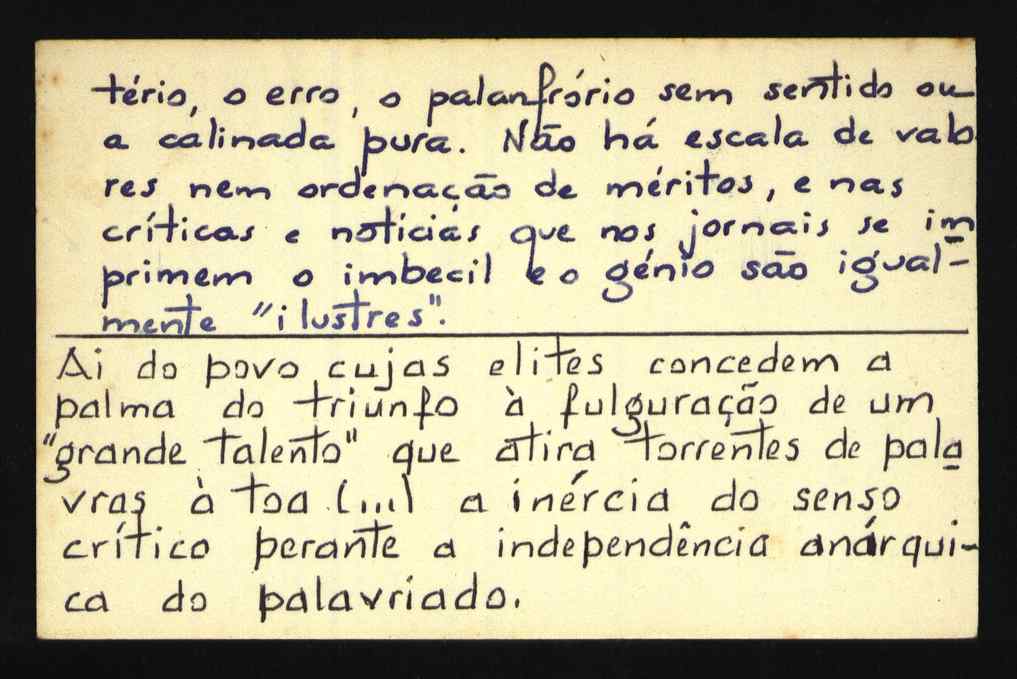 tério, o erro, o palanfrório sem sentido ou
a calinada pura. Não há escala de valo
res nem ordenação de méritos, e nas
críticas e notícias que nos jornais se im
primem o imbecil e o génio são igual-
mente "ilustres".
Ai do povo cujas elites concedem a
palma do triunfo à fulguração de um
"grande talento" que atira torrentes de pala
vras à toa (...) a inércia do senso
crítico perante a independência anárqui-
ca do palavriado.